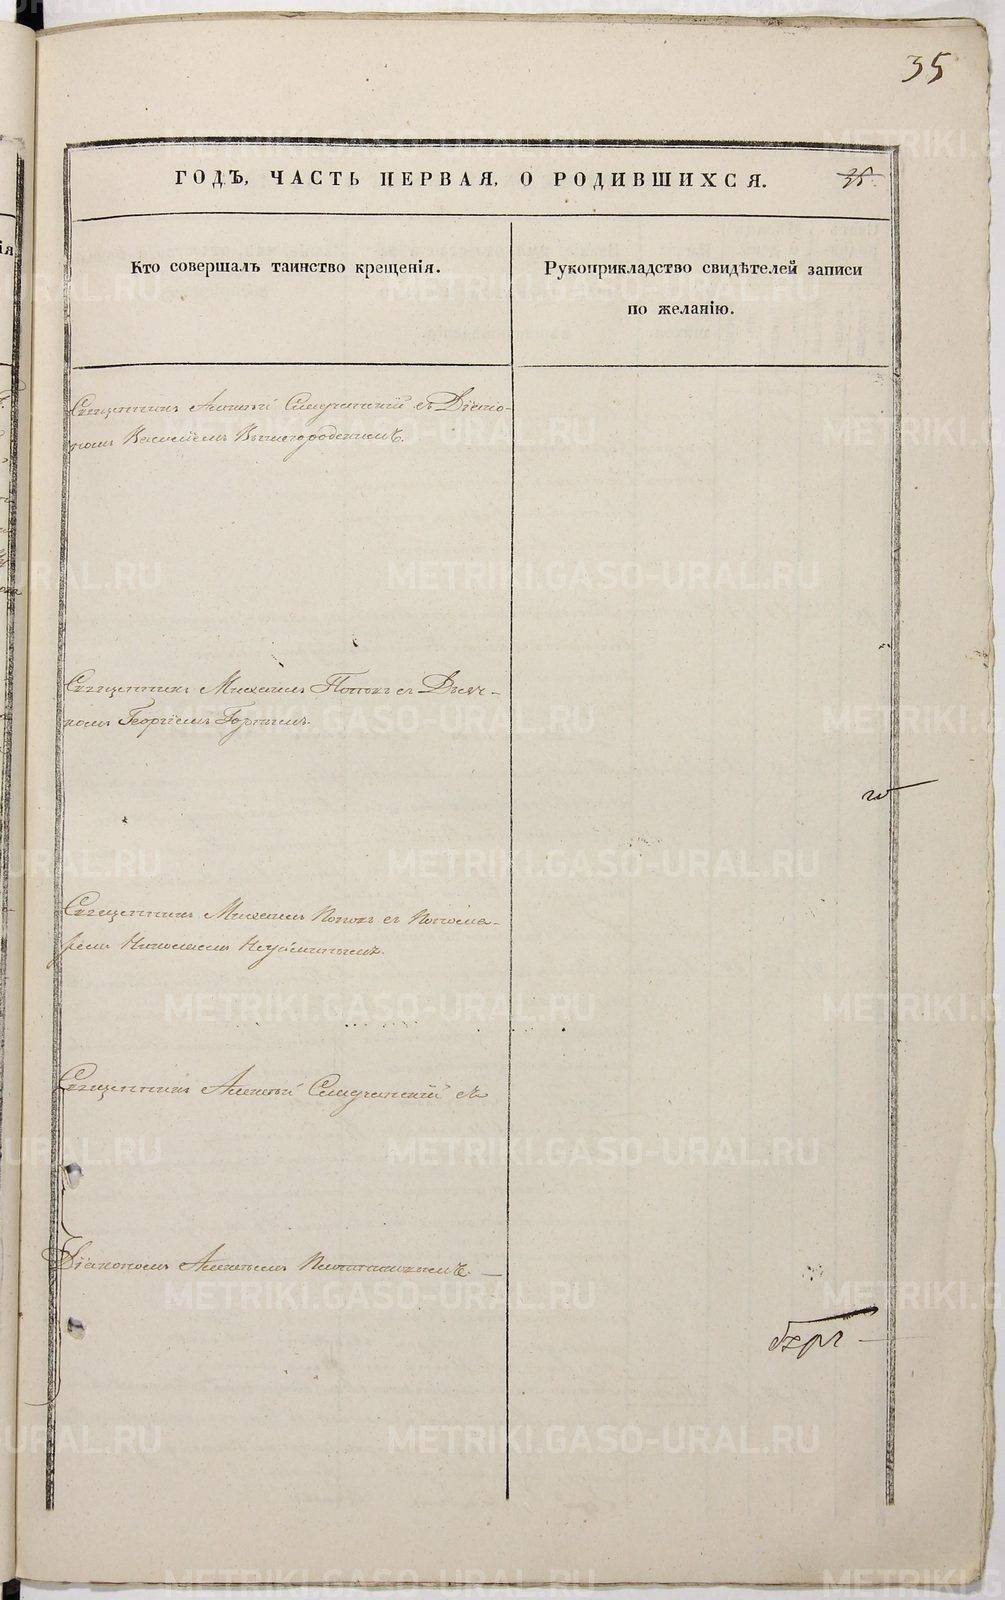 35
ГОДЪ, ЧАСТЬ ПЕРВАЯ, О РОДИВШИХСЯ.
35.
Кто совершалъ таинство крещенія.
Рукоприкладство свидѣтелей записи
по желанію.
Священникъ Алексій Словчанскій съ Діако-
номъ Василіемъ Вышегородскимъ.
Священникъ Михаилъ Поповъ съ Дьяч-
комъ Георгіемъ Горнымъ.
Священникъ Михаилъ Поповъ съ Понома-
ремъ Николаемъ
Священникъ Алексій съ
Діакономъ Алексѣемъ
METRIKI.GASO-URAL.RU